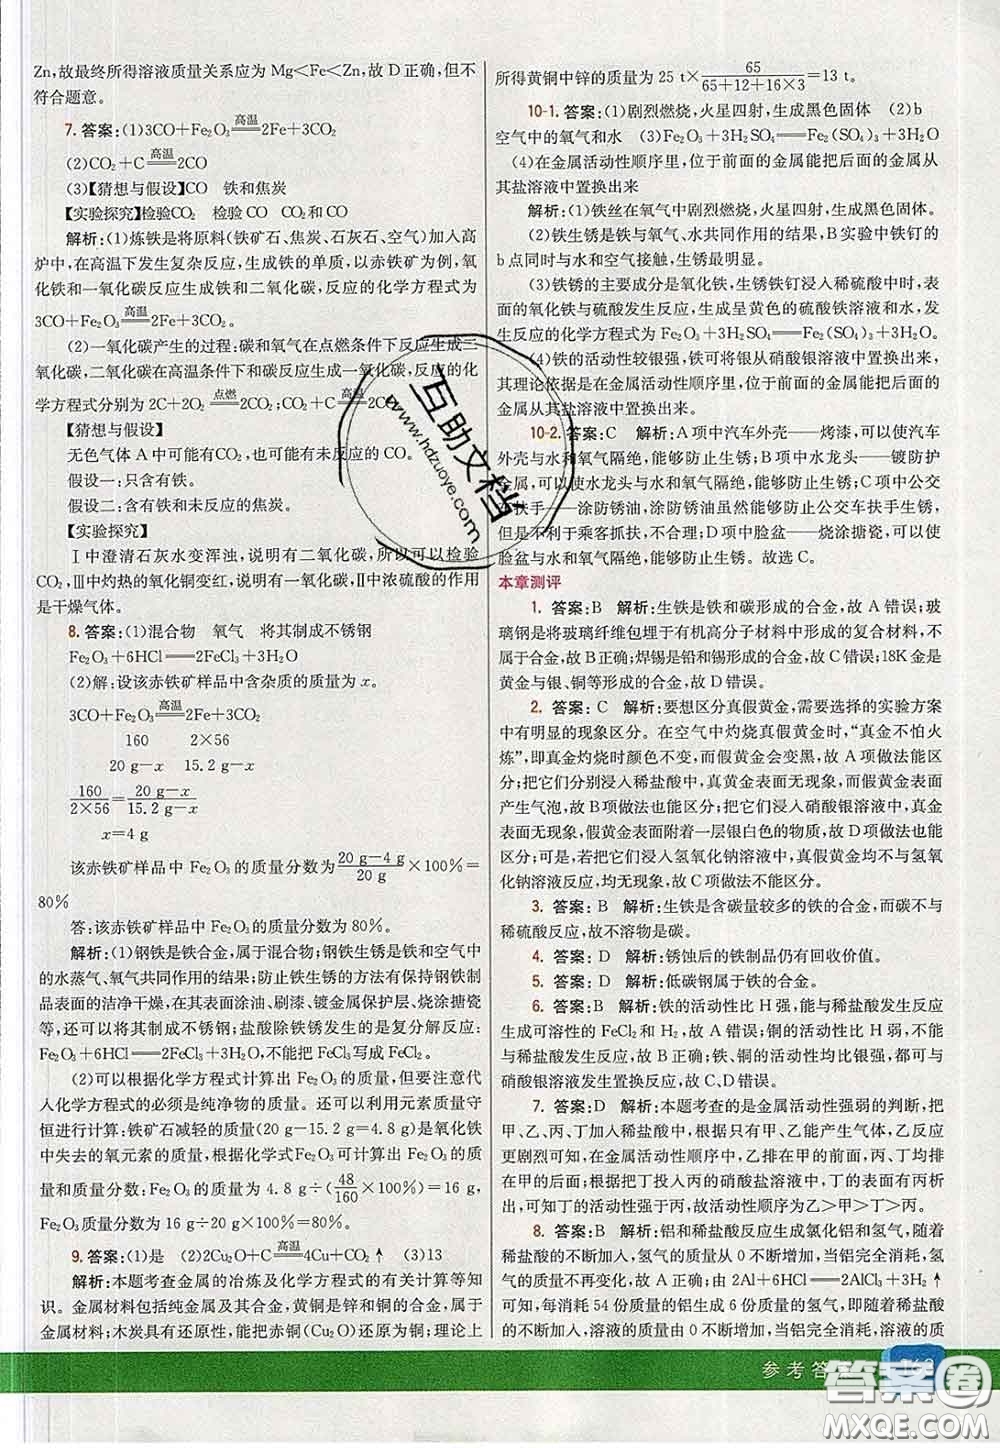 Zn,故最终所得溶液质量关系应为 Mg<Fe<Zn,故 D 正确,但不
符合题意。
7. 答案:(1)3CO+Fe₂O₃ 高温 2Fe+3CO₂
(2)CO₂+C 高温 2CO
(3)【猜想与假设】CO 铁和焦炭
【实验探究】检验CO₂ 检验 CO CO₂和 CO
解析:(1)炼铁是将原料(铁矿石、焦炭、石灰石、空气)加入高
炉中,在高温下发生复杂反应,生成铁的单质,以赤铁矿为例,氧
化铁和一氧化碳反应生成铁和二氧化碳,反应的化学方程式为
3CO+Fe₂O₃ 高温 2Fe+3CO₂。
(2)一氧化碳产生的过程:碳和氧气在点燃条件下反应生成二
氧化碳,二氧化碳在高温条件下和碳反应生成一氧化碳,反应的化
学方程式分别为 2C+2O₂ 点燃 2CO₂;CO₂+C 高温 2CO。
【猜想与假设】
无色气体 A 中可能有 CO₂,也可能有未反应的 CO。
假设一:只含有铁。
假设二:含有铁和未反应的焦炭。
【实验探究】
Ⅰ中澄清石灰水变浑浊,说明有二氧化碳,所以可以检验
CO₂,Ⅲ中灼热的氧化铜变红,说明有一氧化碳,Ⅱ中浓硫酸的作用
是干燥气体。
8. 答案:(1)混合物 氧气 将其制成不锈钢
Fe₂O₃+6HCl══2FeCl₃+3H₂O
(2)解:设该赤铁矿样品中含杂质的质量为 x。
3CO+Fe₂O₃ 高温 2Fe+3CO₂
160 2×56
20 g-x 15.2 g-x
160/(2×56)=(20 g-x)/(15.2 g-x)
x=4 g
该赤铁矿样品中 Fe₂O₃ 的质量分数为(20 g-4 g)/20 g×100%=
80%
答:该赤铁矿样品中 Fe₂O₃ 的质量分数为 80%。
解析:(1)钢铁是铁合金,属于混合物;钢铁生锈是铁和空气中
的水蒸气、氧气共同作用的结果;防止铁生锈的方法有保持钢铁制
品表面的洁净干燥,在表面涂油、刷漆、镀金属保护层、烧涂搪瓷等,
还可以将其制成不锈钢;盐酸除铁锈发生的是复分解反应:
Fe₂O₃+6HCl══2FeCl₃+3H₂O,不能把 FeCl₃ 写成 FeCl₂。
(2)可以根据化学方程式计算出 Fe₂O₃ 的质量,但要注意代
入化学方程式的必须是纯净物的质量。还可以利用元素质量守
恒进行计算:铁矿石减轻的质量(20 g-15.2 g=4.8 g)是氧化铁
中失去的氧元素的质量,根据化学式 Fe₂O₃ 可计算出 Fe₂O₃ 的质
量和质量分数:Fe₂O₃ 的质量为 4.8 g÷(48/160×100%)=16 g,
Fe₂O₃ 质量分数为 16 g÷20 g×100%=80%。
9. 答案:(1)是 (2)2Cu₂O+C 高温 4Cu+CO₂↑ (3)13
解析:本题考查金属的冶炼及化学方程式的有关计算等知
识。金属材料包括纯金属及其合金,黄铜是锌和铜的合金,属于
金属材料;木炭具有还原性,能把赤铜(Cu₂O)还原成铜;理论上
所得黄铜中锌的质量为 25 t×65/(65+12+16×3)=13 t。
10-1. 答案:(1)剧烈燃烧,火星四射,生成黑色固体 (2)b
空气中的氧气和水 (3)Fe₂O₃+3H₂SO₄══Fe₂(SO₄)₃+3H₂O
(4)在金属活动性顺序里,位于前面的金属能把后面的金属从
其盐溶液中置换出来
解析:(1)铁丝在氧气中剧烈燃烧,火星四射,生成黑色固体。
(2)铁生锈是铁与氧气、水共同作用的结果,B 实验中铁钉的
b 点同时与水和空气接触,生锈最明显。
(3)铁锈的主要成分是氧化铁,生锈铁钉浸入稀硫酸中时,表
面的氧化铁与硫酸发生反应,生成呈黄色的硫酸铁溶液和水,发
生反应的化学方程式为 Fe₂O₃+3H₂SO₄══Fe₂(SO₄)₃+3H₂O。
(4)铁的活动性较银强,铁可将银从硝酸银溶液中置换出来,
其理论依据是在金属活动性顺序里,位于前面的金属能把后面的
金属从其盐溶液中置换出来。
10-2. 答案:C 解析:A 项中汽车外壳——烤漆,可以使汽车
外壳与水和氧气隔绝,能够防止生锈;B 项中水龙头——镀防护
金属,可以使水龙头与水和氧气隔绝,能够防止生锈;C 项中公交
车扶手——涂防锈油,涂防锈油虽然能够防止公交车扶手生锈,
但是不利于乘客抓扶,不合理;D 项中脸盆——烧涂搪瓷,可以使
脸盆与水和氧气隔绝,能够防止生锈。故选 C。
本章测评
1. 答案:B 解析:生铁是铁和碳形成的合金,故 A 错误;玻
璃钢是将玻璃纤维包埋于有机高分子材料中形成的复合材料,不
属于合金,故 B 正确;焊锡是铅和锡形成的合金,故 C 错误;18K 金是
黄金与银、铜等形成的合金,故 D 错误。
2. 答案: C 解析:要想区分真假黄金,需要选择的实验方案
中有明显的现象区分。在空气中灼烧真假黄金时,“真金不怕火
炼”,即真金灼烧时颜色不变,而假黄金会变黑,故 A 项做法能区
分;把它们分别浸入稀盐酸中,真黄金表面无现象,而假黄金表面
产生气泡,故 B 项做法也能区分;把它们浸入硝酸银溶液中,真金
表面无现象,假黄金表面附着一层银白色的物质,故 D 项做法也能
区分;可是,若把它们浸入氢氧化钠溶液中,真假黄金均不与氢氧
化钠溶液反应,均无现象,故 C 项做法不能区分。
3. 答案: B 解析:生铁是含碳量较多的铁的合金,而碳不与
稀硫酸反应,故不溶物是碳。
4. 答案: D 解析:锈蚀后的铁制品仍有回收价值。
5. 答案: D 解析:低碳钢属于铁的合金。
6. 答案: B 解析:铁的活动性比 H 强,能与稀盐酸发生反应
生成可溶性的 FeCl₂ 和 H₂,故 A 错误;铜的活动性比 H 弱,不能
与稀盐酸发生反应,故 B 正确;铁、铜的活动性比银强,都可与
硝酸银溶液发生置换反应,故 C、D 错误。
7. 答案:D 解析:本题考查的是金属活动性强弱的判断,把
甲、乙、丙、丁加入稀盐酸中,只有甲、乙能产生气体,说明甲、乙在
金属活动性顺序中,排在氢的前面,再根据乙能置换出甲,可知乙
排在甲的前面;根据丁投入丙的硝酸盐溶液中,丁表面有丙析出,
可知丁的活动性强于丙,故活动性顺序为乙>甲>丁>丙。
8. 答案: B 解析:铝和稀盐酸反应生成氯化铝和氢气,随着
稀盐酸的不断加入,氢气的质量从 0 不断增加,当铝完全消耗,氢
气的质量不再变化,故 B 正确;由 2Al+6HCl══2AlCl₃+3H₂↑
可知,每消耗 54 份质量的铝生成 6 份质量的氢气,即随着稀盐酸
的不断加入,溶液的质量由 0 不断增加,当铝完全消耗,溶液的质
参考答
互助文档
www.hdzuoye.com
答案圈
MXQE.COM